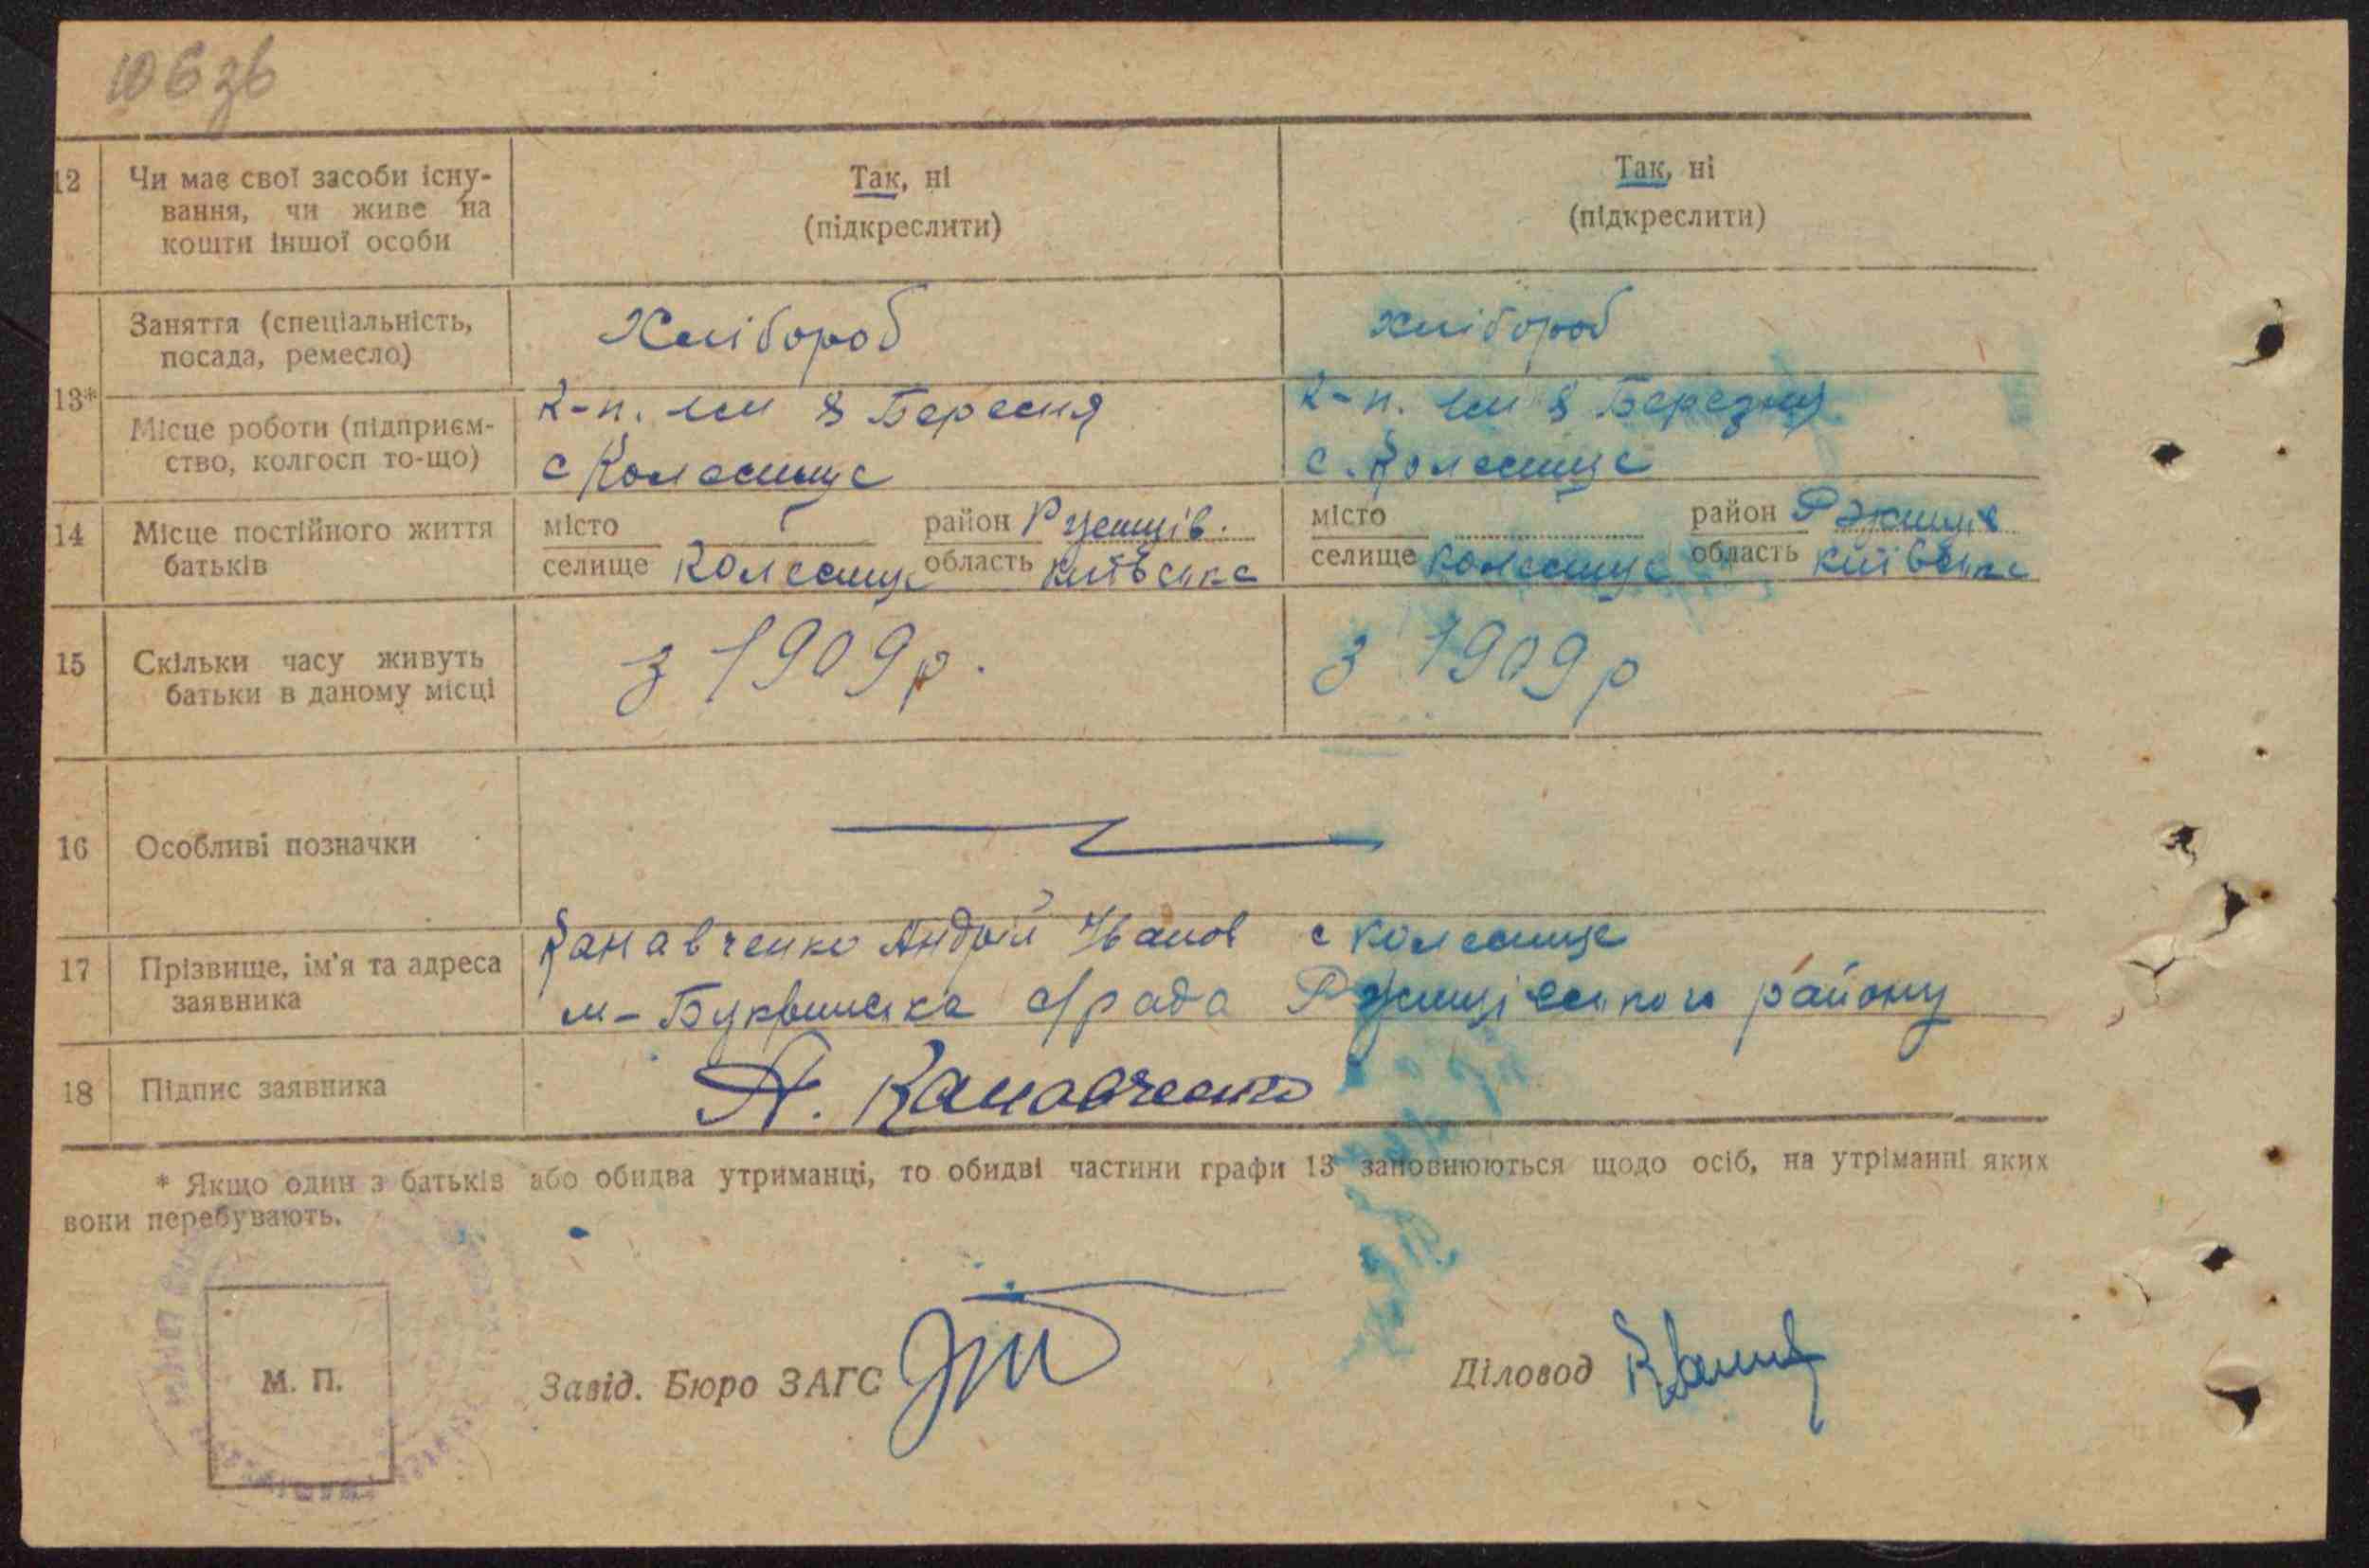 106 зв
12 Чи має свої засоби існу-
вання, чи живе на
кошти іншої особи
Так, ні
(підкреслити)
Так, ні
(підкреслити)
13* Заняття (спеціальність,
посада, ремесло)
Хлібороб
хлібороб
Місце роботи (підприєм-
ство, колгосп то-що)
к-п. ім 8 Березня
с Колесище
к-п. ім 8 Березня
с. Колесище
14 Місце постійного життя
батьків
місто
селище Колесище
район Ржищів.
область київська
місто
селище Колесище
район Ржищів
область київська
15 Скільки часу живуть
батьки в даному місці
з 1909 р.
з 1909 р
16 Особливі позначки
17 Прізвище, ім'я та адреса
заявника
Канавченко Андрій Іванов с Колесище
м-Букринська с/рада Ржищівського району
18 Підпис заявника
А. Канавченко
* Якщо один з батьків або обидва утриманці, то обидві частини графи 13 заповнюються щодо осіб, на утріманні яких
вони перебувають.
М. П.
Завід. Бюро ЗАГС
Діловод